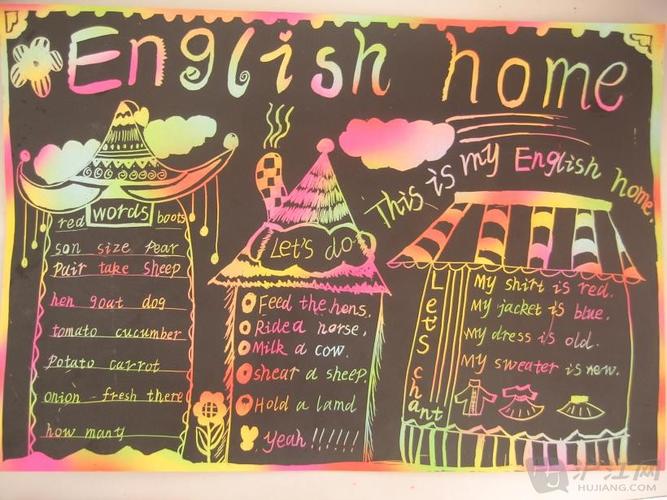 English home
This is my English home.
words
red boots
son size pear
Pair take sheep
hen goat dog
tomato cucumber
Potato carrot
onion fresh there
how many
Let's do
Feed the hens.
Ride a horse.
Milk a cow.
shear a sheep.
Hold a lamd
Yeah!!!!!!
Let's chant
My shirt is red.
My jacket is blue.
My dress is old.
My sweater is new.
沪江网
HUJIANG.COM